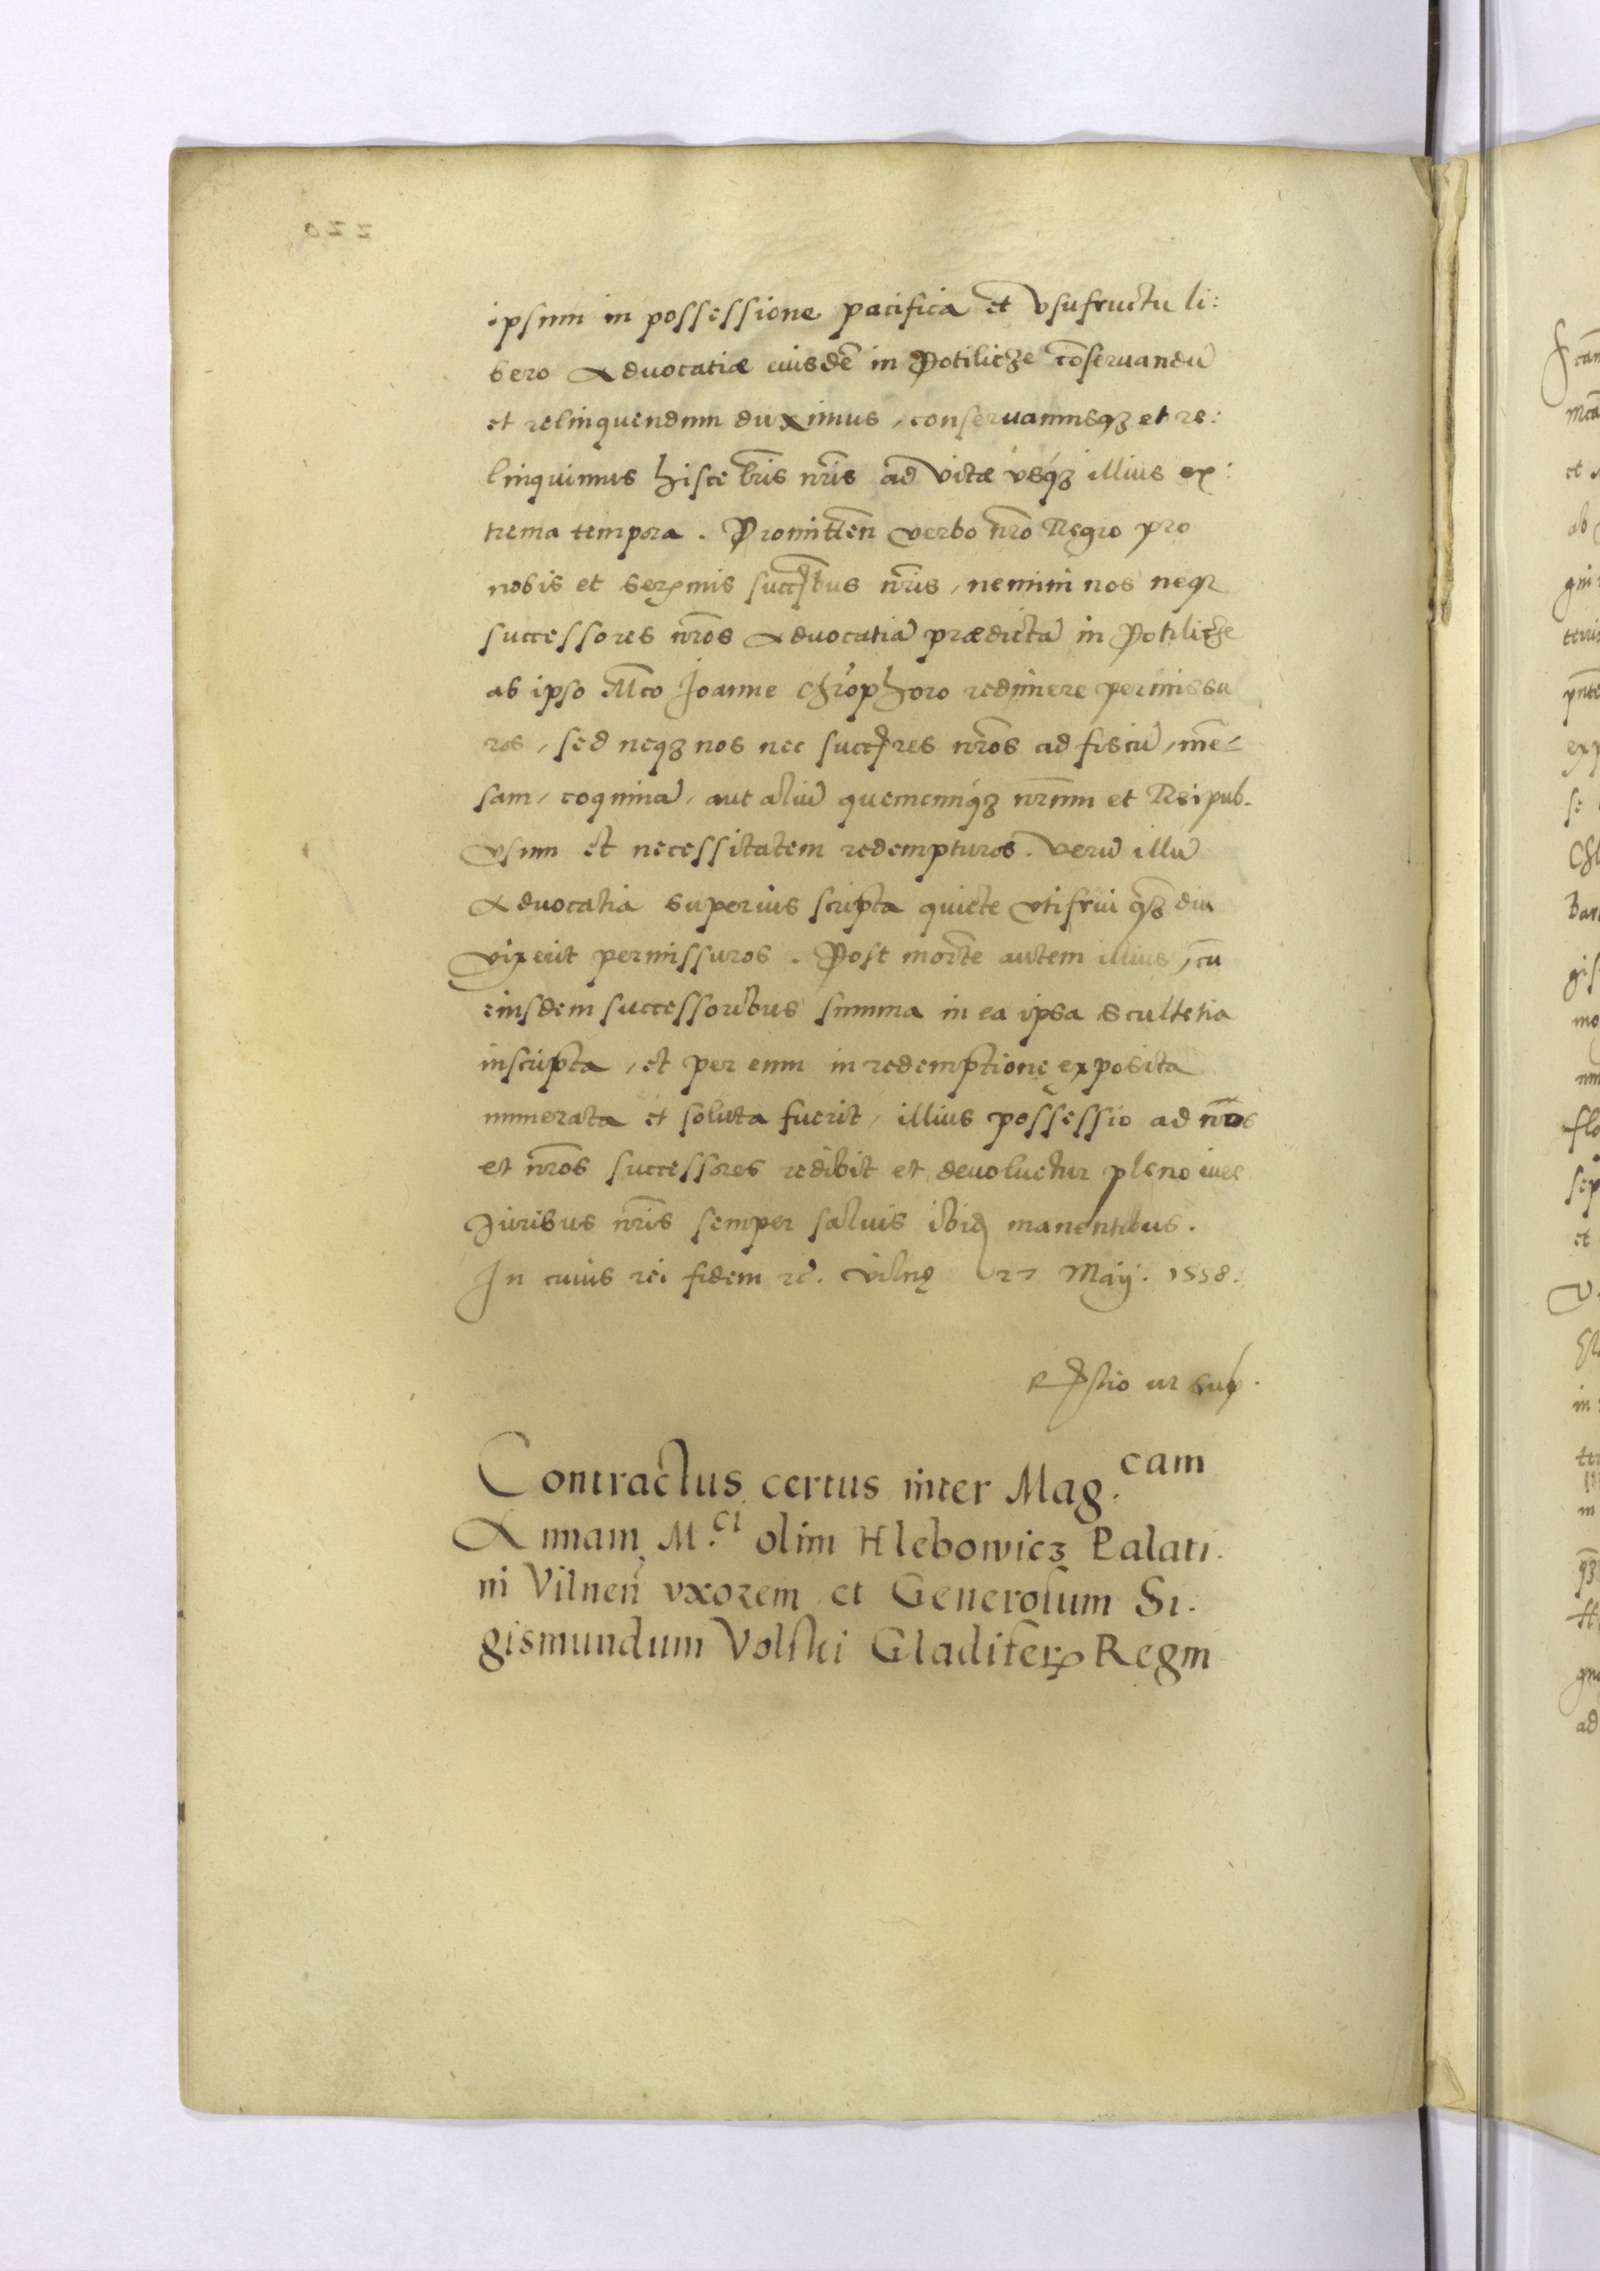 ipsum in possessione pacifica et vsufructu li:
bero Aduocatiæ eiusdē in Potilicze cōseruandū
et relinquendum duximus, conseruamusqꝫ et re:
linquimus hisce lr̄is nr̄is ad vitæ vsqꝫ illius ex:
trema tempora. Promitteñ verbo nr̄o Regio pro
nobis et serꝫmis succ̄bus nr̄is, nemini nos neqꝫ
successores nr̄os Aduocatiā prædictā in Potilicze
ab ipso Mco Joanne Chr̄ophoro redimere permissu
ros, sed neqꝫ nos nec succ̄res nr̄os ad fiscū, mē:
sam, coquinā, aut aliū quemcunqꝫ nr̄um et Reipub.
vsum et necessitatem redempturos. Verū illū
Aduocatia superius scripta quiete vtifrui qꝫdiu
vixerit permissuros. Post mortē autem illius, cū
eiusdem successoribus summa in ea ipsa scultetia
inscripta, et per eum in redemptione exposita
numerata et soluta fuerit, illius possessio ad nos
et nr̄os successores redibit et deuoluetur pleno iure
Juribus nr̄is semper saluis ibidꝫ manentibus.
In cuius rei fidem ꝛc. Vilnę 27 Maij. 1558.
Rꝓstio ut sup.
Contractus certus inter Mag.cam
Annam M.ci olim Hlebowicz Palati.
ni Vilneñ vxorem et Generosum Si.
gismundum Volski Gladiferꝫ Regni
220